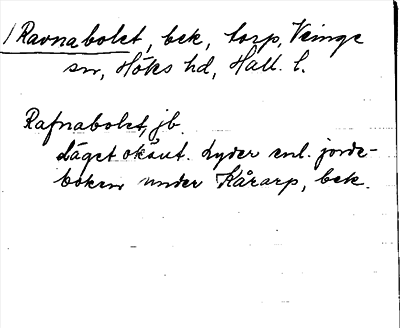 / Ravnabolet, bek, torp, Veinge
sn, Höks hd, Hall. l.
Rafnabolet, jb.
Läget okänt. Lyder enl. jorde-
boken under Kårarp, bek.